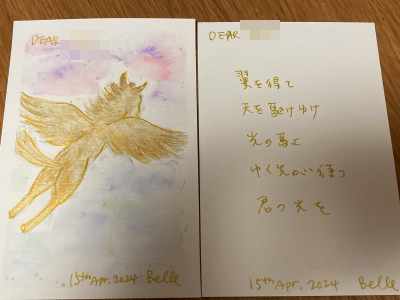 DEAR
15th Apr. 2024 Belle
DEAR
翼を得て
天を駆けゆけ
光の馬よ
ゆく先が待つ
君の光を
15th Apr. 2024 Belle